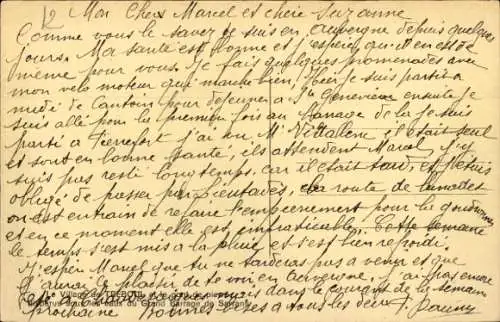 12 Mon Cher Marcel et chère Suzanne
Comme vous le savez je suis en Auvergne depuis quelques
jours. Ma santé est bonne et j'espère qu'il en est de
même pour vous. Je fais quelques promenades avec
mon vélo moteur qui marche bien. Hier je suis parti à
midi de Cantoin pour déjeuner à Ste Geneviève ensuite je
suis allé pour la première fois au Barrage de la je suis
parti à Pierrefort j'ai vu Mr il était seul
et sont en bonne santé, ils attendent Marcel, j'y
suis pas resté longtemps, car il était tard, et j'étais
obligé de passer par la route de
on est entrain de refaire l'empierrement pour la goudronner
et en ce moment elle est impraticable. Cette semaine
le temps s'est mis à la pluie et s'est bien refroidi.
J'espère Marcel que tu ne tarderas pas a venir et que
j'aurai le plaisir de te voir en Auvergne. J'ai pas encore
été à mais dans le courant de la semaine
prochaine Bonnes à tous les deux
Village de
du Grand Barrage de